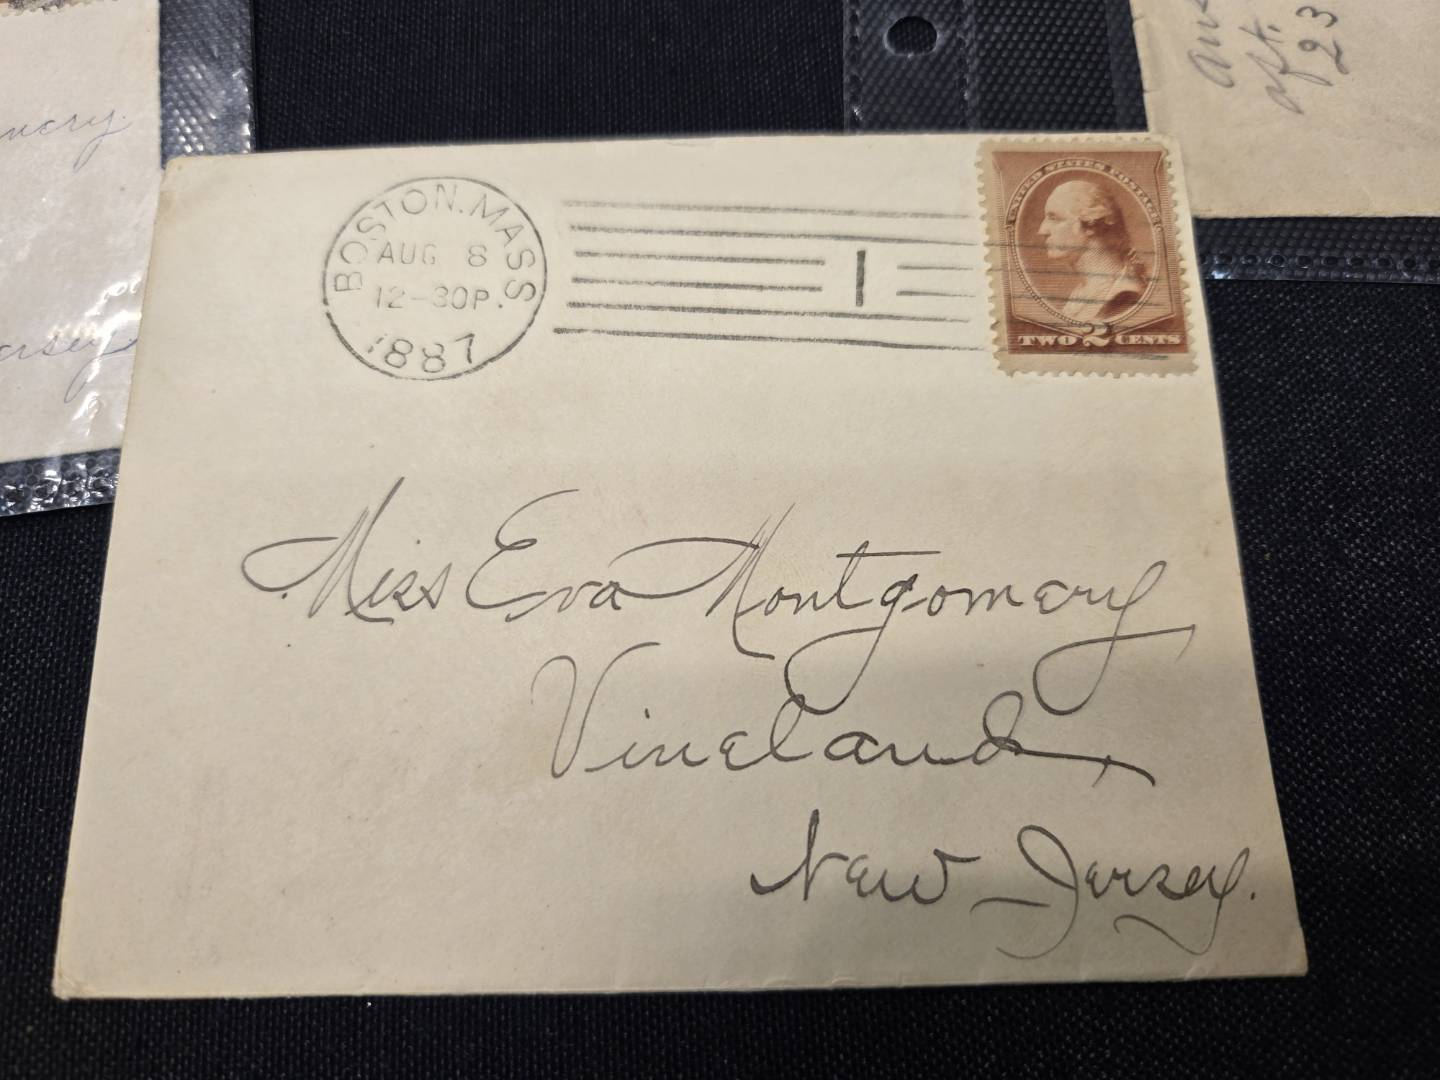 BOSTON. MASS
AUG 8
12-30P.
1887
1
UNITED STATES POSTAGE
TWO 2 CENTS
Miss Eva Montgomery
Vineland,
New Jersey.
mery.
ersey
aft.
23